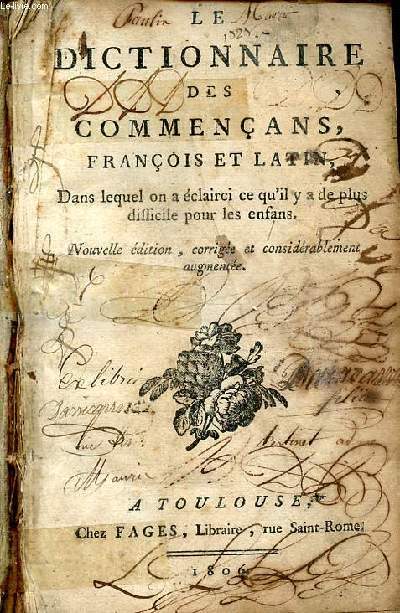 www.le-livre.com
LE
DICTIONNAIRE
DES
COMMENÇANS,
FRANÇOIS ET LATIN,
Dans lequel on a éclairci ce qu'il y a de plus
difficile pour les enfans.
Nouvelle édition, corrigée et considérablement
augmentée.
Ex libris
A TOULOUSE,
Chez FAGES, Libraire, rue Saint-Rome.
1806